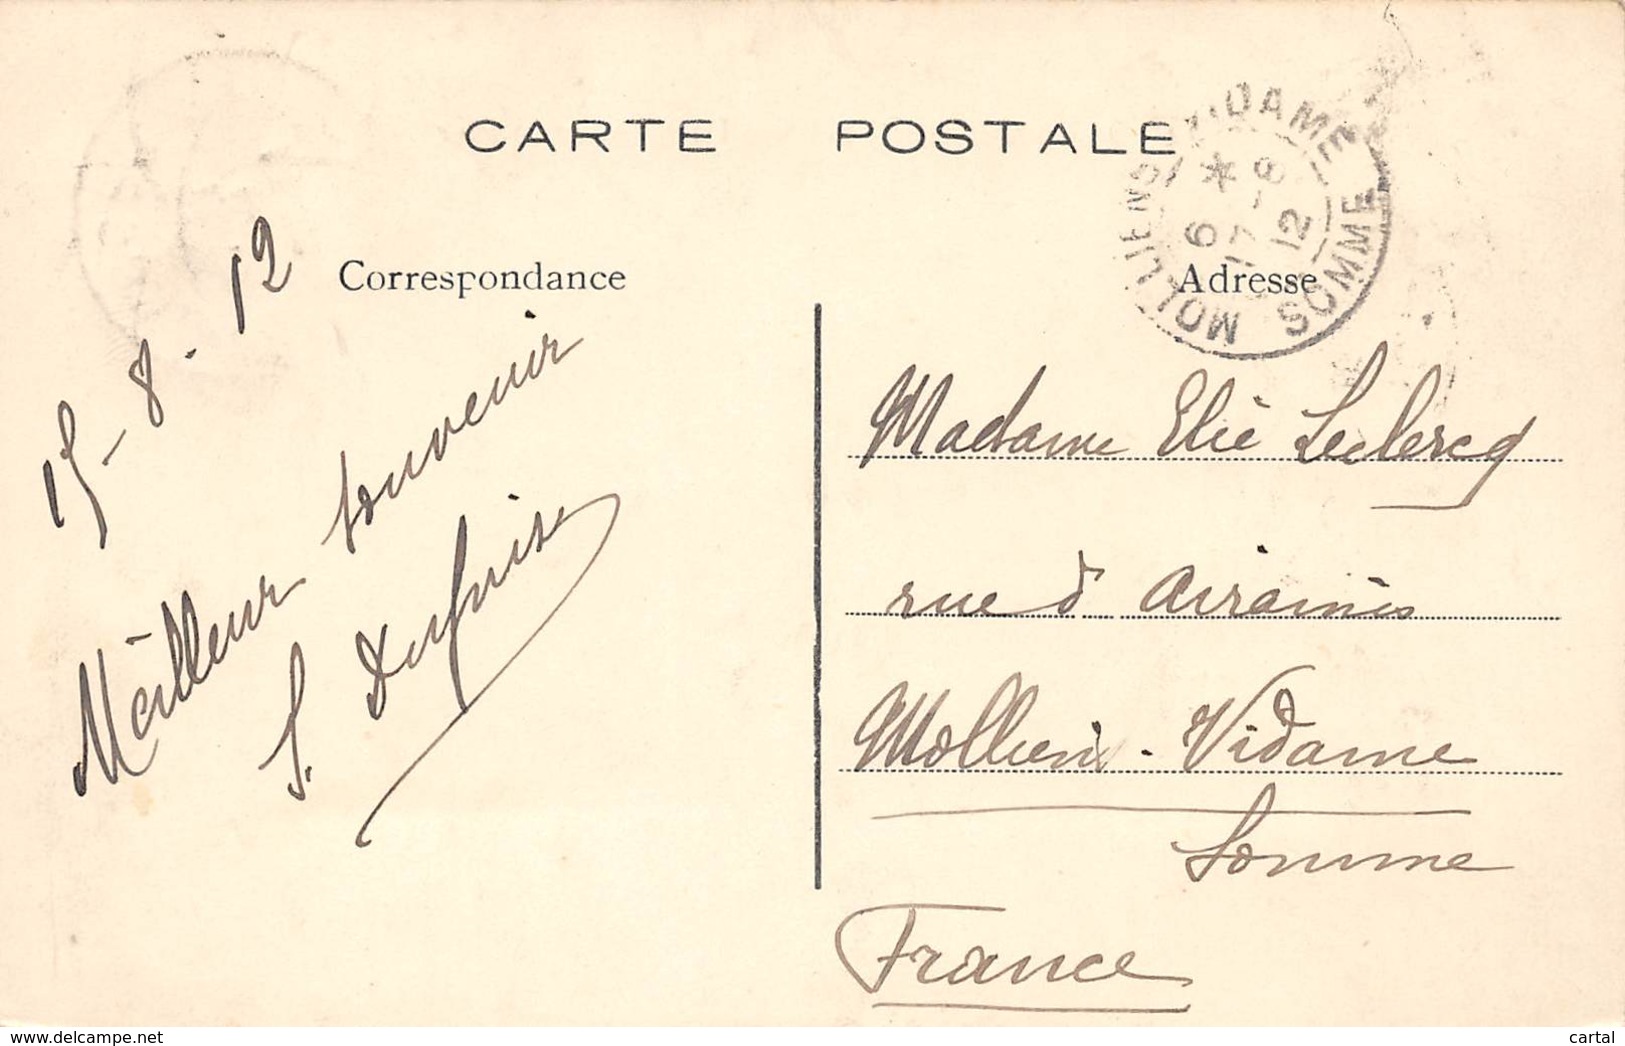 CARTE POSTALE
MOLLIENS-VIDAME
SOMME
6 *
17 - 8
12
Correspondance
Adresse
15 - 8 - 12
Meilleur souvenir
S.
Madame Elie Leclercq
rue d' Airaines
Molliens - Vidame
Somme
France
www.delcampe.net
cartal